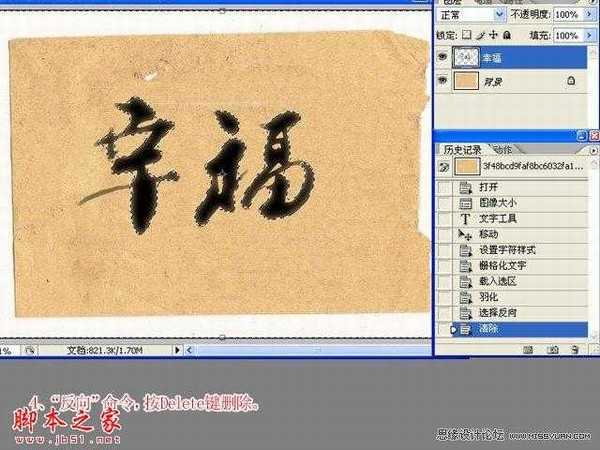 正常
不透明度: 100%
锁定:
填充: 100%
幸福
背景
幸福
历史记录
动作
3f48bcd9faf8bc6032fa1...
打开
图像大小
文字工具
移动
设置字符样式
栅格化文字
载入选区
羽化
选择反向
清除
文档:821.3K/1.70M
4、“反向”命令,按Delete键删除。
脚本之家
www.jb51.net
思缘设计论坛 WWW.MISSYUAN.COM